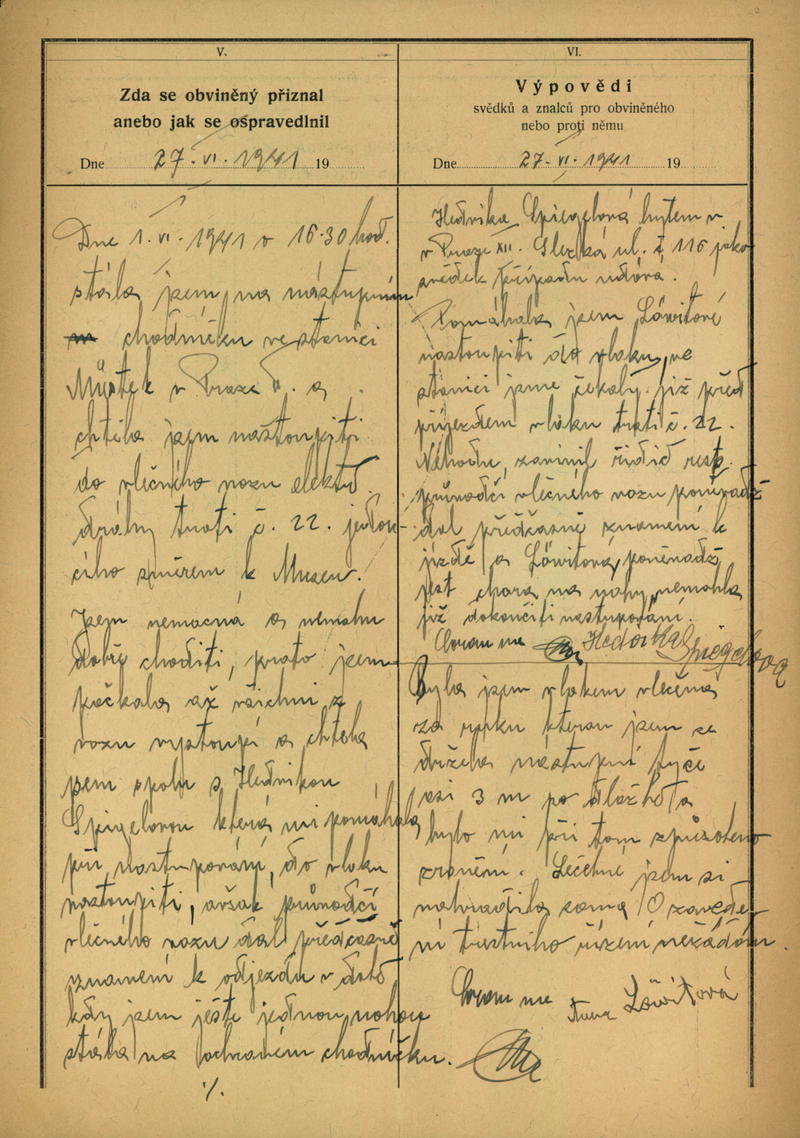 V.
Zda se obviněný přiznal
anebo jak se ospravedlnil
Dne 27. VI. 1941 19
Dne 1. VI. 1941 v 16·30 hod.
stála jsem na nástupním
chodníčku ve stanici
Můstek v Praze II. a
chtěla jsem nastoupiti
do vlečného vozu elektr.
dráhy trati č. 22. jedou-
cího směrem k Museu.
Jsem nemocná a nemohu
dobře choditi, proto jsem
počkala až všichni z
vozu vystoupí a chtěla
jsem spolu s Hedvikou
Spigelovou která mi pomáhala
při nastupování, do vlaku
nastoupiti, avšak průvodčí
vlečného vozu dal předčasně
znamení k odjezdu v době
kdy jsem ještě jednou nohou
stála na ochraném chodníčku.
./.
VI.
Výpovědi
svědků a znalců pro obviněného
nebo proti němu
Dne 27. VI. 1941 19
Hedvika Spiegelová bytem v
v Praze XII. Slezká ul. č 116 jako
svědek případu udává.
Pomáhala jsem Löwitové
nastoupiti do vlaku, ve
stanici jsme čekaly již před
příjezdem vlaku trati č. 22.
Nehodu, zavinil řidič resp.
průvodčí vlečného vozu poněvadž
dal předčasně znamení k
jízdě a Löwitová, poněvadž
jest chorá na nohy, nemohla
již dokončiti nastupování.
Hedvika Spiegelová
Byla jsem vlakem vlečena
za ruku kterou jsem se
držela nástupní tyče
asi 3 m po dlažbě a
bylo mi při tom způsobeno
zranění. Léčení jsem si
nahradila sama. O zavede-
ní trestního řízení nežádám.
Löwitová